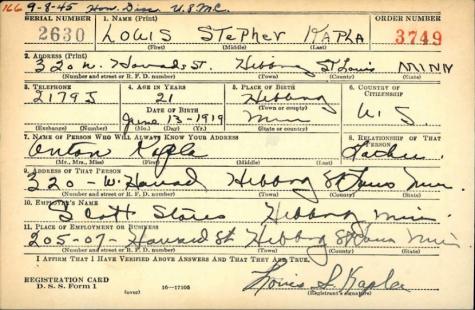 166 9-8-45 Hon. Disc. U.S.M.C.
SERIAL NUMBER 1. NAME (Print) ORDER NUMBER
2630 LOUIS STEPHEN KAPLA 3749
(First) (Middle) (Last)
2. ADDRESS (Print)
320 W. Howard St. Hibbing St Louis MINN
(Number and street or R. F. D. number) (Town) (County) (State)
3. TELEPHONE 4. AGE IN YEARS 5. PLACE OF BIRTH 6. COUNTRY OF CITIZENSHIP
2179J 21 Hibbing
DATE OF BIRTH (Town or county)
June 13-1919 Min U.S.
(Exchange) (Number) (Mo.) (Day) (Yr.) (State or country)
7. NAME OF PERSON WHO WILL ALWAYS KNOW YOUR ADDRESS 8. RELATIONSHIP OF THAT PERSON
Anton Kapla Father.
(Mr., Mrs., Miss) (First) (Middle) (Last)
9. ADDRESS OF THAT PERSON
320 - W. Howard Hibbing St Louis Min
(Number and street or R. F. D. number) (Town) (County) (State)
10. EMPLOYER'S NAME
Scott Stores Hibbing Min.
11. PLACE OF EMPLOYMENT OR BUSINESS
205-07- Howard St Hibbing St Louis Min
(Number and street or R. F. D. number) (Town) (County) (State)
I AFFIRM THAT I HAVE VERIFIED ABOVE ANSWERS AND THAT THEY ARE TRUE.
REGISTRATION CARD
D. S. S. Form 1 16-17105 Louis S. Kapla
(over) (Registrant's signature)